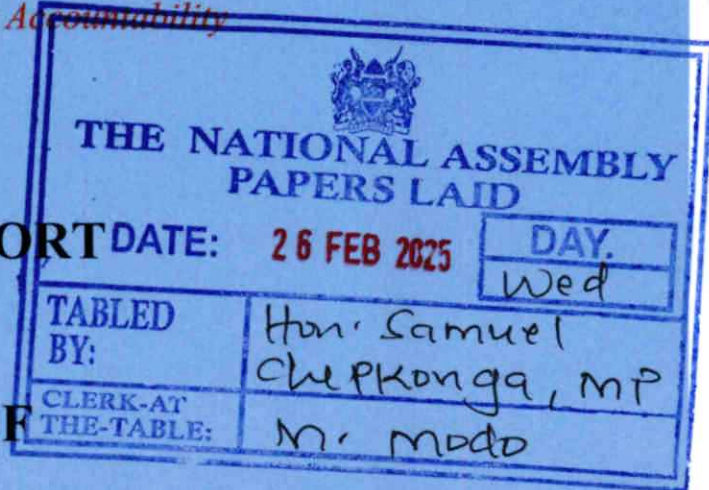 Accountability
THE NATIONAL ASSEMBLY
PAPERS LAID
ORT DATE: 26 FEB 2025 DAY.
Wed
TABLED BY: Hon. Samuel
Chepkonga, MP
F CLERK-AT THE-TABLE: M. Modo